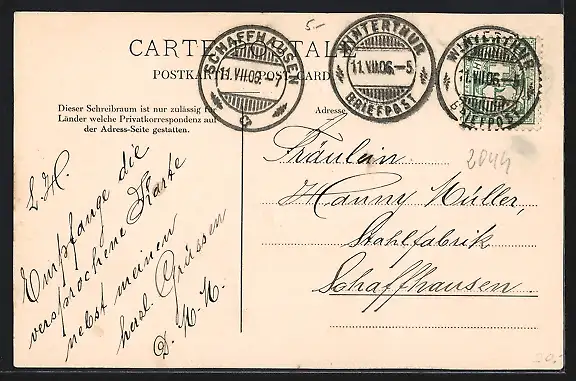 5.-
CARTE POSTALE
POSTKARTE POST CARD
SCHAFFHAUSEN
11.VII.06. -7
WINTERTHUR
11.VII.06.-5
BRIEFPOST
WINTERTHUR
11.VII.06.
BRIEFPOST
Dieser Schreibraum ist nur zulässig für
Länder welche Privatkorrespondenz auf
der Adress-Seite gestatten.
Adresse
L. H.
Empfange die
versprochene Karte
nebst meinen
herzl. Grüssen
D. H. H.
2044
Fräulein
Hanny Müller,
Stahlfabrik
Schaffhausen